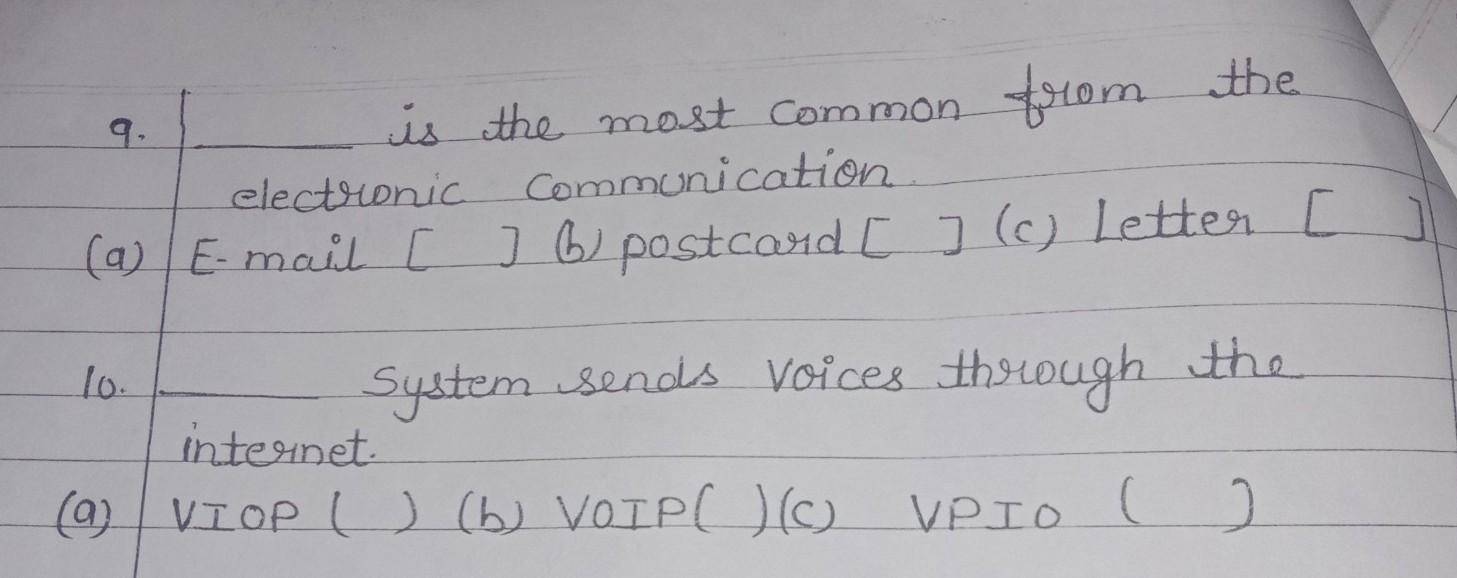 9. ______ is the most common from the
electronic communication.
(a) E-mail [ ] (b) postcard [ ] (c) Letter [ ]
10. ______ System sends voices through the
internet.
(a) VIOP ( ) (b) VOIP ( ) (c) VPIO ( )